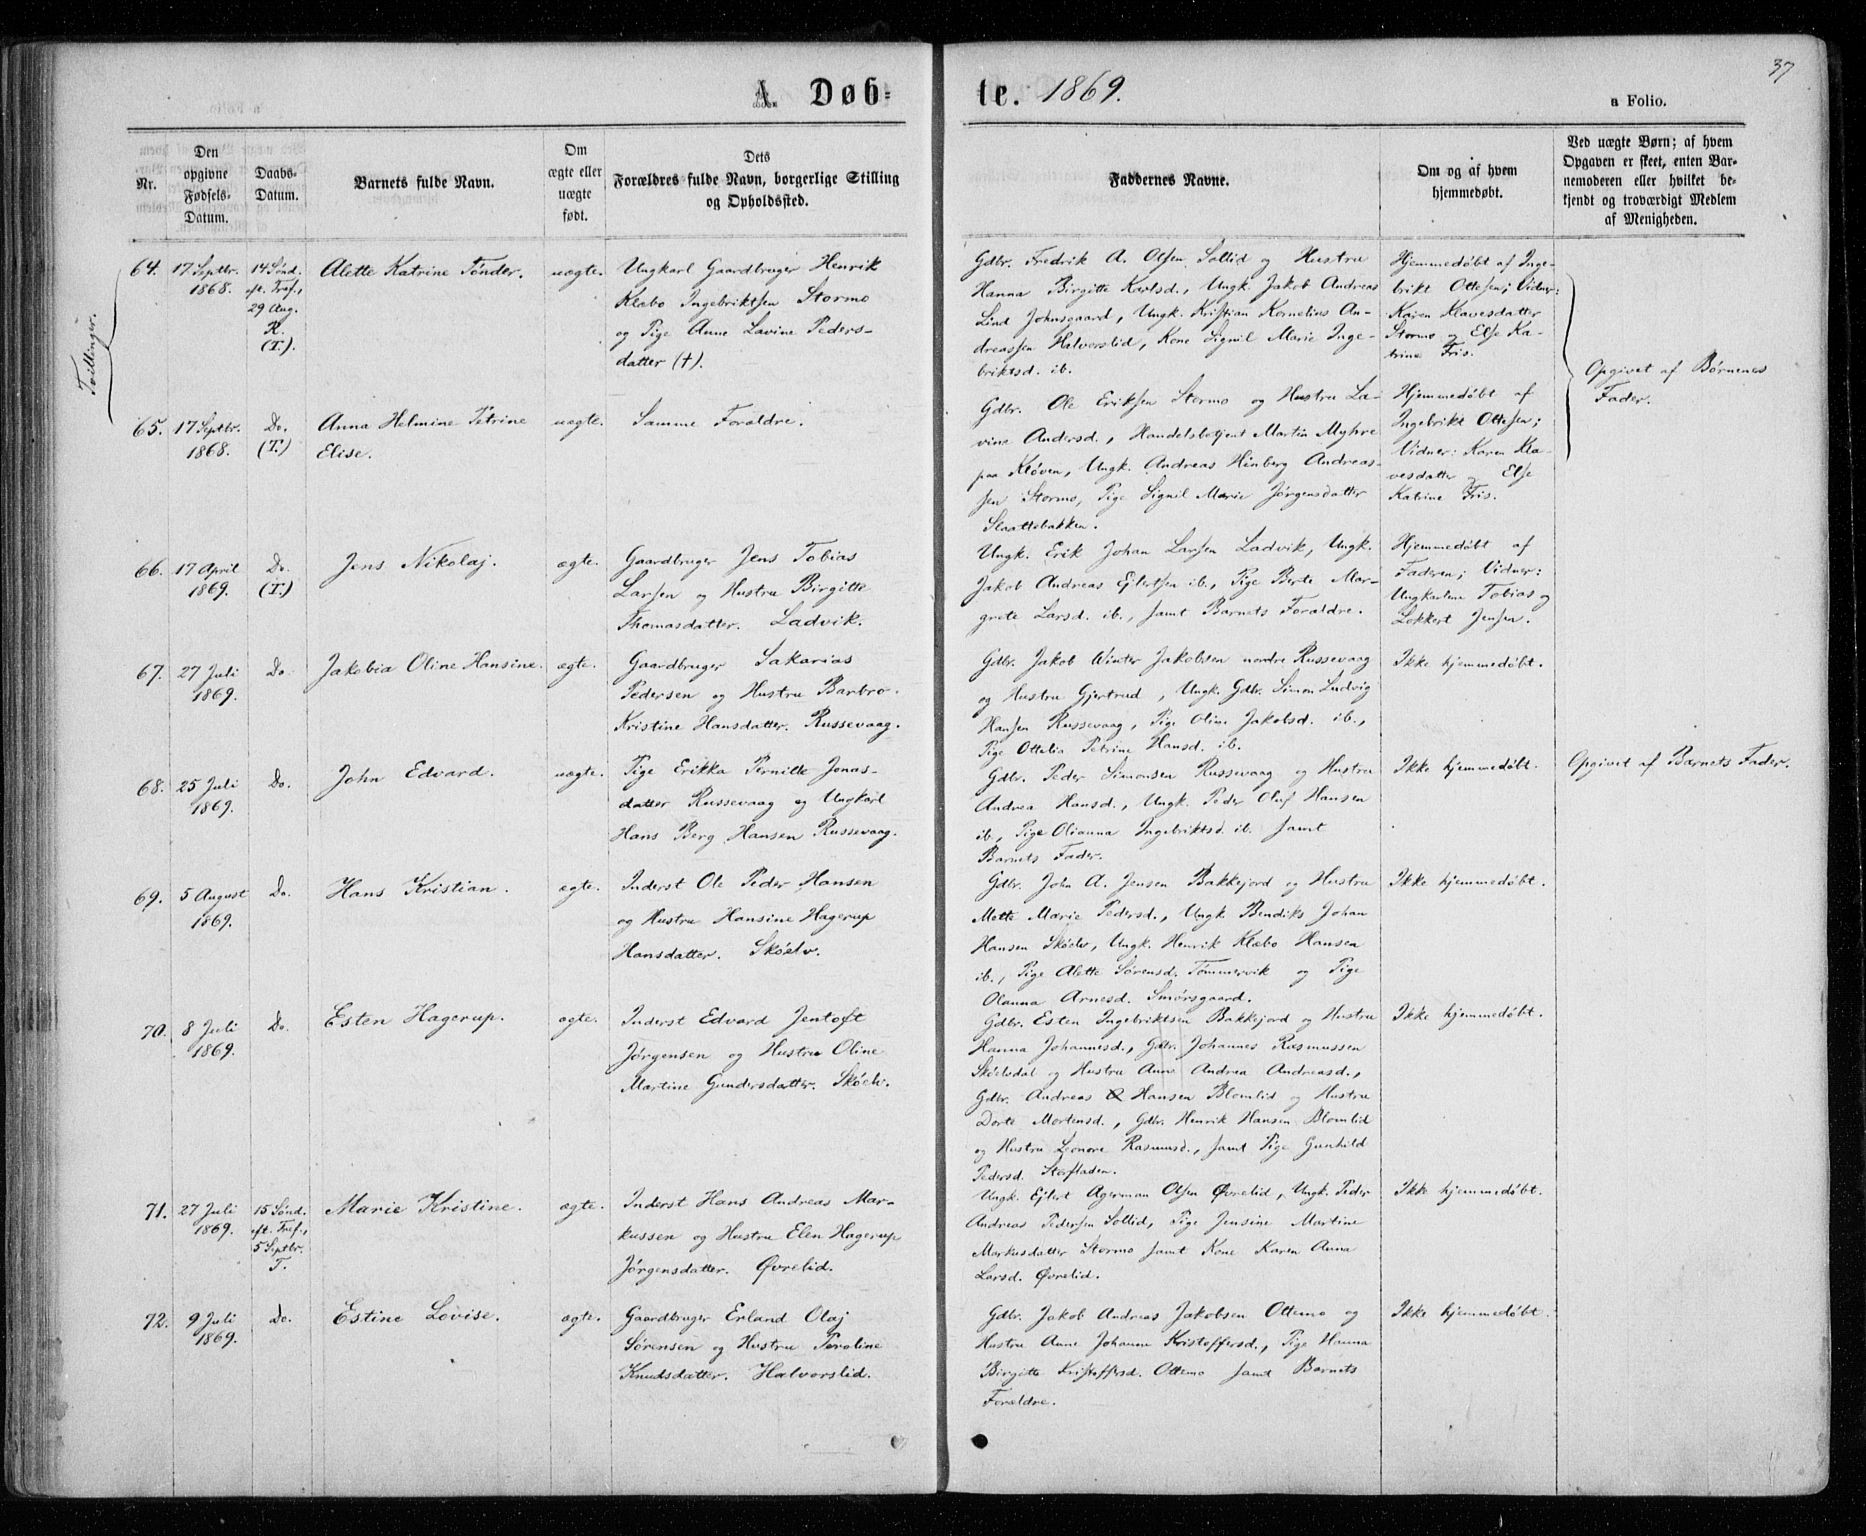 37
A Døb-
te. 1869.
a Folio.
Nr.
Den
opgivne
Fødsels-
Datum.
Daabs-
Datum.
Barnets fulde Navn.
Om
ægte eller
uægte
født.
Dets
Forældres fulde Navn, borgerlige Stilling
og Opholdssted.
Faddernes Navne.
Om og af hvem
hjemmedøbt.
Ved uægte Børn; af hvem
Opgaven er skeet, enten Bar-
nemoderen eller hvilket be-
kjendt og troværdigt Medlem
af Menigheden.
Tvillinger.
64.
17 Septbr.
1868.
14 Sønd.
eft. Tref.,
29 Aug.
K.
(T.).
Alette Katrine Tønder.
uægte.
Ungkarl Gaardbruger Henrik
Klæbo Ingebriktsen Stormo
og Pige Anne Lavine Peders-
datter (†).
Gdbr. Fredrik A. Olsen Sollid og Hustru
Hanna Birgitte Karlsd., Ungk. Jakob Andreas
Lind Johnsgaard, Ungk. Kristian Kornelius An-
dreassen Halvorslid, Kone Signil Marie Inge-
briktsd. ib.
Hjemmedøbt af Inge-
brikt Ottesen; Vidner:
Karen Klavesdatter
Stormo og Else Ka-
trine Friis.
Opgivet af Børnenes
Fader.
65.
17 Septbr.
1868.
Do.
(T.)
Anna Helmine Petrine
Elise.
uægte.
Samme Forældre.
Gdbr. Ole Eriksen Stormo og Hustru La-
vine Andersd., Handelsbetjent Martin Myhre
paa Kløven, Ungk. Andreas Hinberg Andreas-
sen Stormo, Pige Signil Marie Jørgensdatter
Slaattebakken.
Hjemmedøbt af
Ingebrikt Ottesen;
Vidner: Karen Kla-
vesdatter og Else
Katrine Friis.
66.
17 April
1869.
Do.
(T.)
Jens Nikolaj.
ægte.
Gaardbruger Jens Tobias
Larsen og Hustru Birgitte
Thomasdatter. Ladvik.
Ungk. Erik Johan Larsen Ladvik, Ungk.
Jakob Andreas Ejlertsen ib., Pige Berte Mar-
grete Larsd. ib., samt Barnets Forældre.
Hjemmedøbt af
Faderen; Vidner:
Ungkarlene Tobias og
Lokkert Jensen.
67.
27 Juli
1869.
Do.
Jakobia Oline Hansine.
ægte.
Gaardbruger Sakarias
Pedersen og Hustru Barbro
Kristine Hansdatter. Russevaag.
Gdbr. Jakob Winter Jakobsen nordre Russevaag
og Hustru Gjertrud, Ungk. Gdbr. Simon Ludvig
Hansen Russevaag, Pige Oline Jakobsd. ib.,
Pige Ottelia Petrine Hansd. ib.
Ikke hjemmedøbt.
68.
25 Juli
1869.
Do.
John Edvard.
uægte.
Pige Erikka Pernille Jonas-
datter Russevaag og Ungkarl
Hans Berg Hansen Russevaag.
Gdbr. Peder Simonsen Russevaag og Hustru
Andrea Hansd., Ungk. Peder Oluf Hansen
ib., Pige Olianna Ingebriktsd. ib. samt
Barnets Fader.
Ikke hjemmedøbt.
Opgivet af Barnets Fader.
69.
5 August
1869.
Do.
Hans Kristian.
ægte.
Inderst Ole Peder Hansen
og Hustru Hansine Hagerup
Hansdatter. Skóelv.
Gdbr. John A. Jensen Bakkejord og Hustru
Mette Marie Pedersd., Ungk. Bendiks Johan
Hansen Skóelv, Ungk. Henrik Klæbo Hansen
ib., Pige Alette Sørensd. Tømmervik og Pige
Olanna Arnesd. Smørsgaard.
Ikke hjemmedøbt.
70.
8 Juli
1869.
Do.
Esten Hagerup.
ægte.
Inderst Edvard Jentoft
Jørgensen og Hustru Oline
Martine Gundersdatter. Skóelv.
Gdbr. Esten Ingebriktsen Bakkejord og Hustru
Hanna Johannesd., Gdbr. Johannes Rasmussen
Skóelvdal og Hustru Anne Andrea Andreasd.,
Gdbr. Andreas Hansen Blomlid og Hustru
Dorte Mortensd., Gdbr. Henrik Hansen Blomlid
og Hustru Leonore Rasmusd., samt Pige Gunhild
Pedersd.
Ikke hjemmedøbt.
71.
27 Juli
1869.
15 Sønd.
eft. Tref.,
5 Septbr.
T.
Marie Kristine.
ægte.
Inderst Hans Andreas Mar-
kussen og Hustru Elen Hagerup
Jørgensdatter. Øvrelid.
Ungk. Ejlert Agerman Olsen Øvrelid, Ungk. Peder
Andreas Pedersen Sollid, Pige Jensine Martine
Markusdatter Stormo samt Kone Karen Anna
Larsd. Øvrelid.
Ikke hjemmedøbt.
72.
9 Juli
1869.
Do.
Estine Lovise.
ægte.
Gaardbruger Erland Olaj
Sørensen og Hustru Peroline
Knudsdatter. Halvorslid.
Gdbr. Jakob Andreas Jakobsen Ottemo og
Hustru Anne Johanna Kristoffersd., Pige Hanna
Birgitte Kristoffersd. Ottemo samt Barnets
Forældre.
Ikke hjemmedøbt.